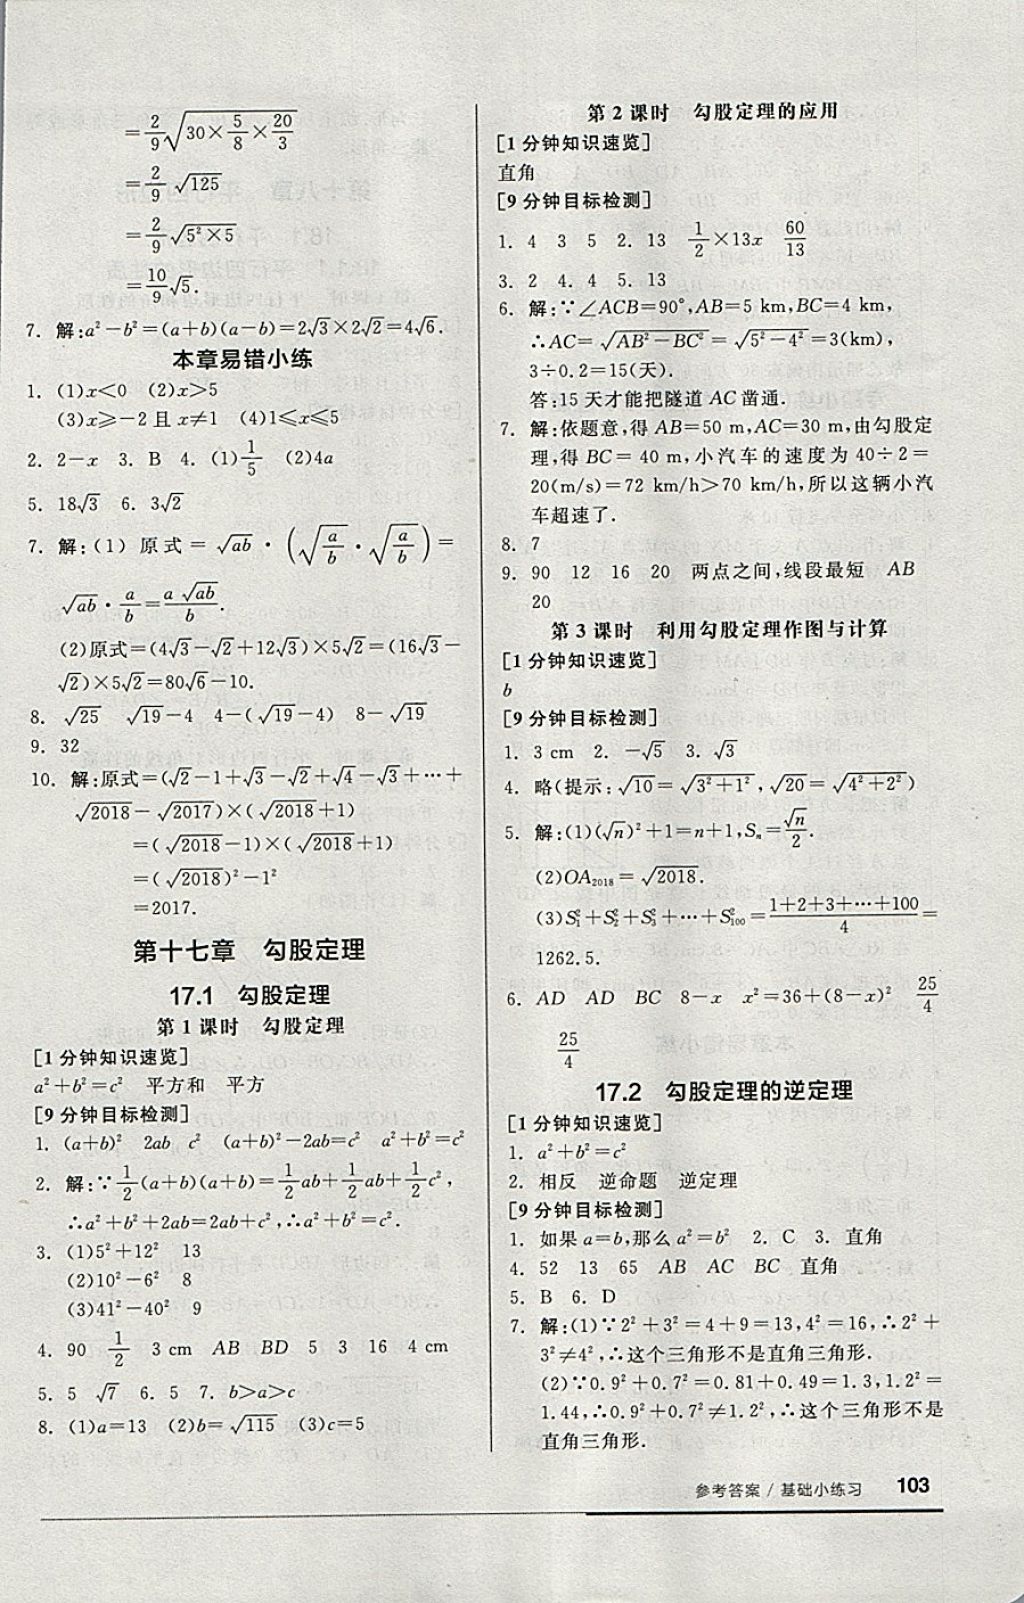 =2/9√(30×5/8×20/3)
=2/9 √125
=2/9√(5²×5)
=10/9√5.
7. 解:a²-b²=(a+b)(a-b)=2√3×2√2=4√6.
本章易错小练
1. (1)x<0 (2)x>5
(3)x≥-2 且 x≠1 (4)1≤x≤5
2. 2-x 3. B 4. (1)1/5 (2)4a
5. 18√3 6. 3√2
7. 解:(1) 原式 = √ab · (√(a/b) · √(a/b)) =
√ab · a/b = a√ab/b.
(2)原式=(4√3-√2+12√3)×5√2=(16√3-
√2)×5√2=80√6-10.
8. √25 √19-4 4-(√19-4) 8-√19
9. 32
10. 解:原式=(√2-1+√3-√2+√4-√3+…+
√2018-√2017)×(√2018+1)
=(√2018-1)×(√2018+1)
=(√2018)²-1²
=2017.
第十七章 勾股定理
17.1 勾股定理
第 1 课时 勾股定理
[1 分钟知识速览]
a²+b²=c² 平方和 平方
[9 分钟目标检测]
1. (a+b)² 2ab c² (a+b)²-2ab=c² a²+b²=c²
2. 解:∵1/2(a+b)(a+b)=1/2ab+1/2ab+1/2c²,
∴a²+b²+2ab=2ab+c²,∴a²+b²=c².
3. (1)5²+12² 13
(2)10²-6² 8
(3)41²-40² 9
4. 90 1/2 3 cm AB BD 5 3 16 4 cm
5. 5 √7 6. 5 7. b>a>c
8. (1)a=13 (2)b=√115 (3)c=5
第 2 课时 勾股定理的应用
[1 分钟知识速览]
直角
[9 分钟目标检测]
1. 4 3 5 2. 13 1/2×13x 60/13
3. 2 4. 4 5. 13
6. 解:∵∠ACB=90°,AB=5 km,BC=4 km,
∴AC=√(AB²-BC²)=√(5²-4²)=3(km),
3÷0.2=15(天).
答:15 天才能把隧道 AC 凿通.
7. 解:依题意,得 AB=50 m,AC=30 m,由勾股定
理,得 BC = 40 m,小汽车的速度为 40÷2 =
20(m/s)=72 km/h>70 km/h,所以这辆小汽
车超速了.
8. 7
9. 90 12 16 20 两点之间,线段最短 AB
20
第 3 课时 利用勾股定理作图与计算
[1 分钟知识速览]
b
[9 分钟目标检测]
1. 3 cm 2. -√5 3. √3
4. 略(提示:√10=√(3²+1²),√20=√(4²+2²))
5. 解:(1)(√n)²+1=n+1,Sₙ=√n/2.
(2)OA₂₀₁₈=√2018.
(3)S₁²+S₂²+S₃²+…+S₁₀₀²=(1+2+3+…+100)/4=
1262.5.
6. AD AD BC 8-x x²=36+(8-x)² 25/4
25/4
17.2 勾股定理的逆定理
[1 分钟知识速览]
1. a²+b²=c²
2. 相反 逆命题 逆定理
[9 分钟目标检测]
1. 如果 a=b,那么 a²=b² 2. C 3. 直角
4. 52 13 65 AB AC BC 直角
5. B 6. D
7. 解:(1)∵2²+3²=4+9=13,4²=16,∴2²+
3²≠4²,∴这个三角形不是直角三角形.
(2)∵0.9²+0.7²=0.81+0.49=1.3,1.2²=
1.44,∴0.9²+0.7²≠1.2²,∴这个三角形不是
直角三角形.
参考答案 / 基础小练习 103